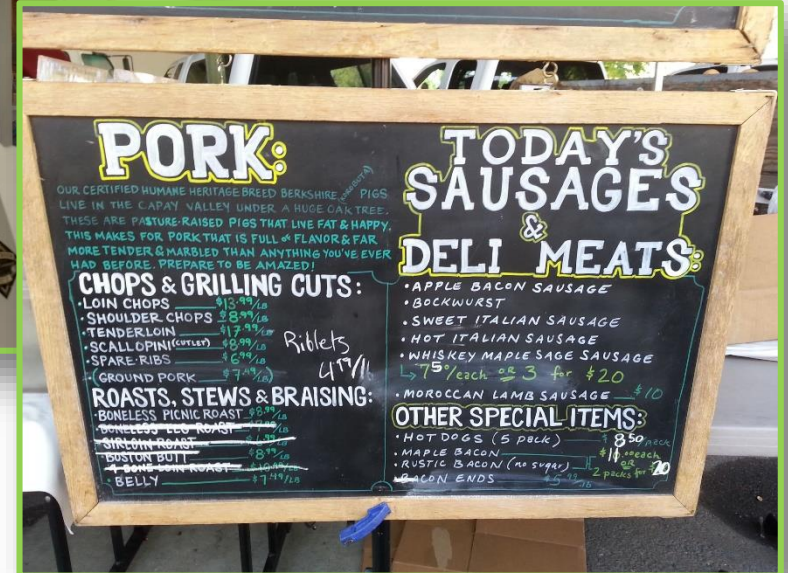 PORK:
OUR CERTIFIED HUMANE HERITAGE BREED BERKSHIRE (KUROBUTA) PIGS
LIVE IN THE CAPAY VALLEY UNDER A HUGE OAK TREE.
THESE ARE PASTURE-RAISED PIGS THAT LIVE FAT & HAPPY,
THIS MAKES FOR PORK THAT IS FULL of FLAVOR & FAR
MORE TENDER & MARBLED THAN ANYTHING YOU'VE EVER
HAD BEFORE. PREPARE TO BE AMAZED!
CHOPS & GRILLING CUTS:
• LOIN CHOPS $13.99/LB
• SHOULDER CHOPS $8.99/LB
• TENDERLOIN $17.99/LB
• SCALLOPINI (CUTLET) $8.99/LB
• SPARE RIBS $6.99/LB
(GROUND PORK $7.49/LB)
Riblets
4.99/lb
ROASTS, STEWS & BRAISING:
• BONELESS PICNIC ROAST $8.99/LB
BONELESS LEG ROAST
SIRLOIN ROAST
BOSTON BUTT $8.99/LB
4 BONE LOIN ROAST
• BELLY $7.49/LB
TODAY'S
SAUSAGES
&
DELI MEATS:
• APPLE BACON SAUSAGE
• BOCKWURST
• SWEET ITALIAN SAUSAGE
• HOT ITALIAN SAUSAGE
• WHISKEY MAPLE SAGE SAUSAGE
↳ 7.50/each OR 3 for $20
• MOROCCAN LAMB SAUSAGE $10
OTHER SPECIAL ITEMS:
• HOT DOGS (5 pack) $8.50/pack
• MAPLE BACON
• RUSTIC BACON (no sugar)
each
OR
2 packs for $20
BACON ENDS $5.99/LB